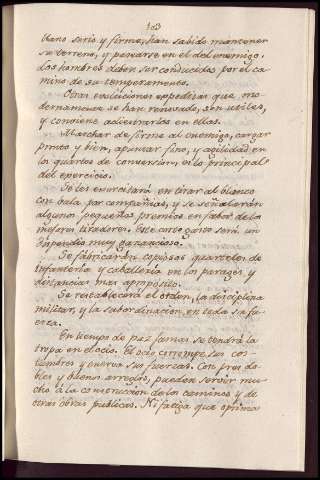 103
tano serio y firme, han sabido mantener
su terreno, y pararse en el del enemigo.
Los hombres deben ser conducidos por el ca
mino de su temperamento.
Otras evoluciones expeditas que mo
dernamente se han renovado, son utiles,
y conviene adiestrarlos en ellas.
Marchar de firme al enemigo, cargar
pronto y bien, apuntar fixo, y agilidad en
los quartos de conversion, es lo principal
del egercicio.
Se les exercitará en tirar al blanco
con bala por compañias, y se señalarán
algunos pequeños premios en fabor de los
mejores tiradores. Este corto gasto será un
dispendio muy ganancioso.
Se fabricarán copiosos quarteles de
infanteria y caballeria en los parages y
distancias mas aproposito.
Se restablecerá el orden, la disciplina
militar, y la subordinacion, en toda su fu
erza.
En tiempo de paz jamas se tendrá la
tropa en el ocio. El ocio corrompe sus cos-
tumbres y enerva sus fuerzas. Con pres do-
bles y buenos arreglos, pueden servir mu
cho á la construccion de los caminos y de
otras obras publicas. Ni fatiga que oprima